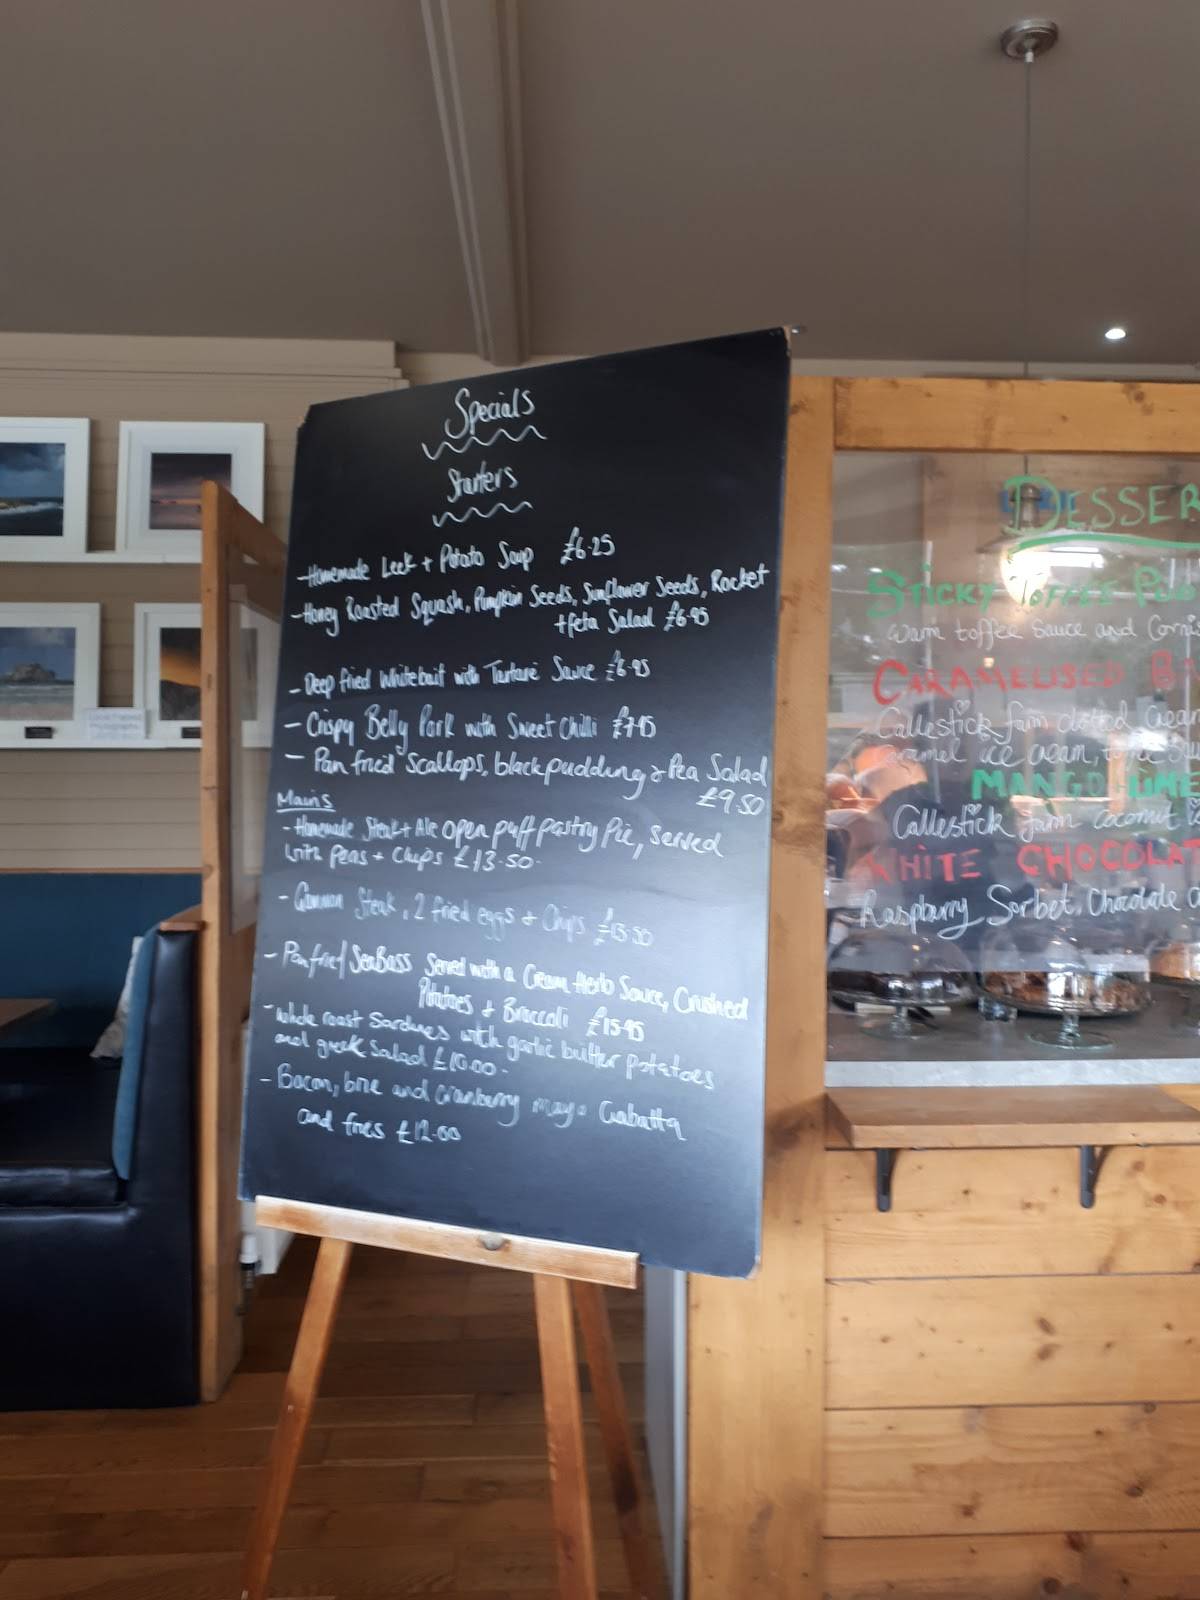 Specials
Starters
-Homemade Leek + Potato Soup £6.25
-Honey Roasted Squash, Pumpkin Seeds, Sunflower Seeds, Rocket
+ feta Salad £6.95
- Deep fried Whitebait with Tartare Sauce £6.95
- Crispy Belly Pork with Sweet Chilli £7.95
- Pan fried Scallops, black pudding & Pea Salad
£9.50
Mains
- Homemade Steak + Ale open puff pastry Pie, served
with peas + Chips £13.50.
- Gammon Steak, 2 fried eggs + Chips £13.50
- Pan fried SeaBass Served with a Cream Herb Sauce, Crushed
Potatoes + Broccoli £15.95
- whole roast Sardines with garlic butter potatoes
and greek salad £10.00.
- Bacon, brie and cranberry mayo Ciabatta
and fries £12.00
DESSER
STICKY TOFFEE PUD
warm toffee sauce and Cornis
CARAMELISED B
Callestick farm clotted cream
caramel ice cream,
MANGO LIME
Callestick farm coconut
WHITE CHOCOLAT
Raspberry Sorbet, Chocolate